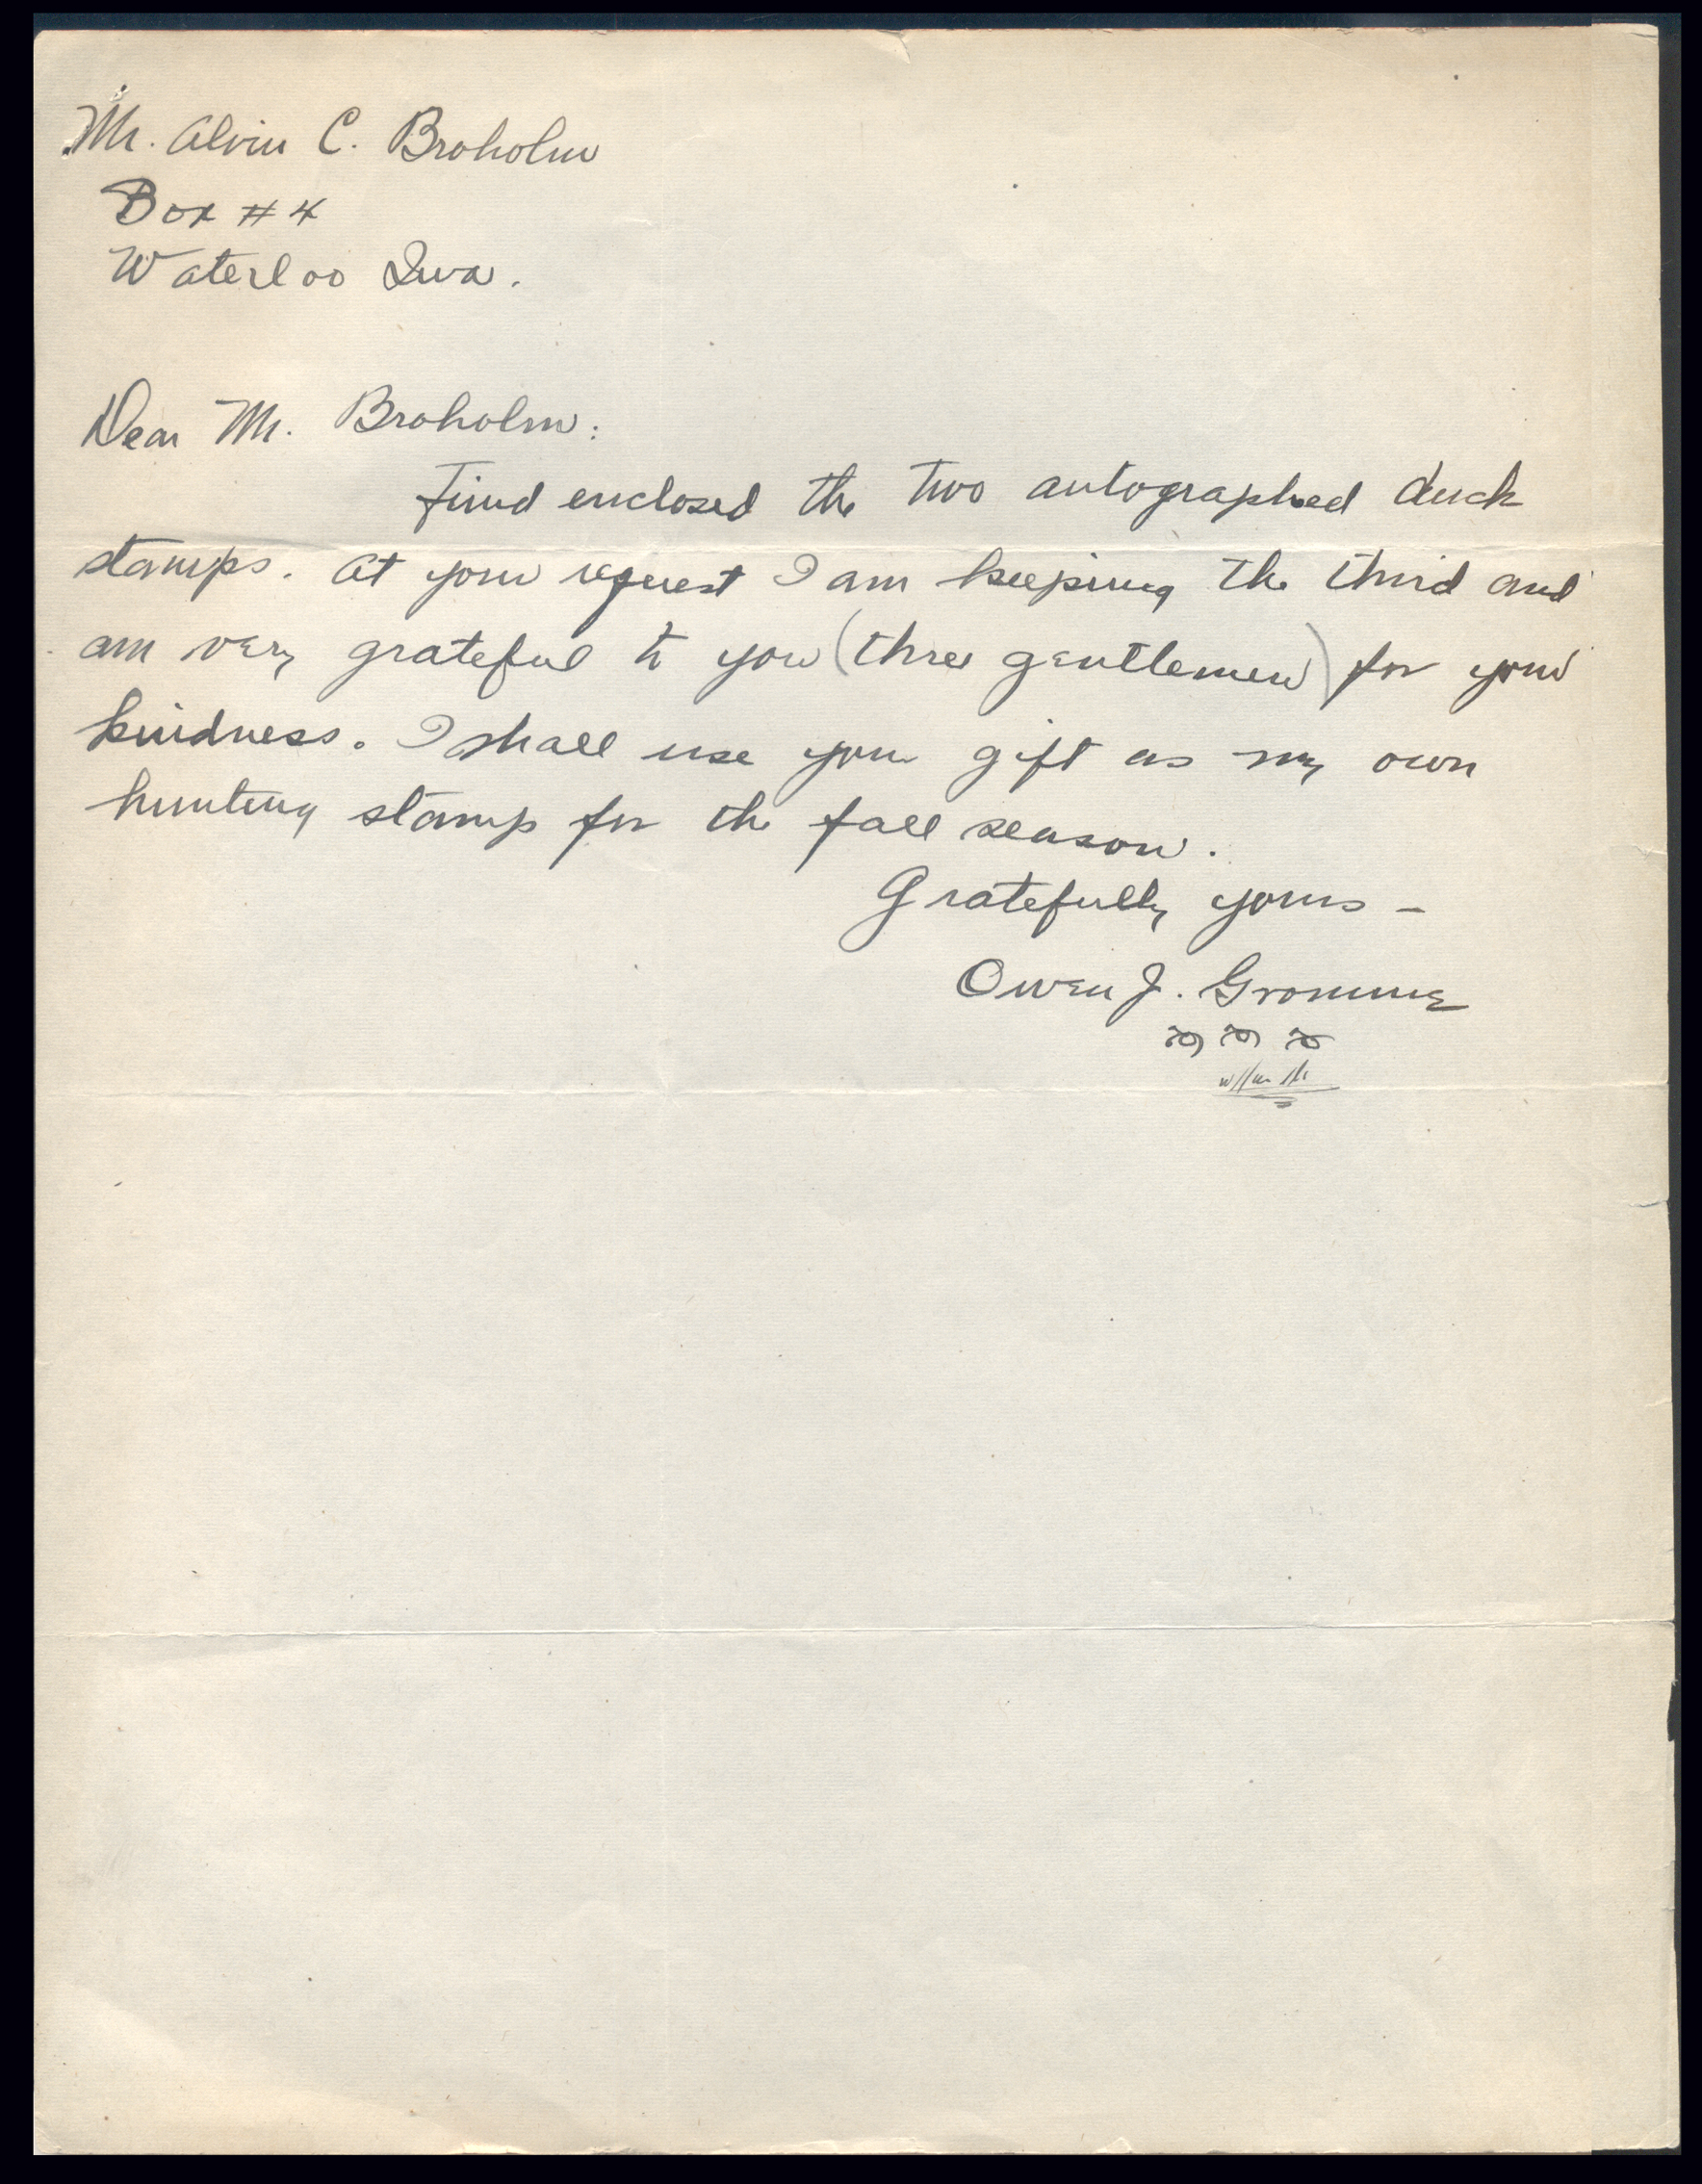 Mr. Alvin C. Broholm
Box # 4
Waterloo Iwa.
Dear Mr. Broholm:
Find enclosed the two autographed duck
stamps. At your request I am keeping the third and
am very grateful to you (three gentlemen) for your
kindness. I shall use your gift as my own
hunting stamp for the fall season.
Gratefully yours -
Owen J. Gromme